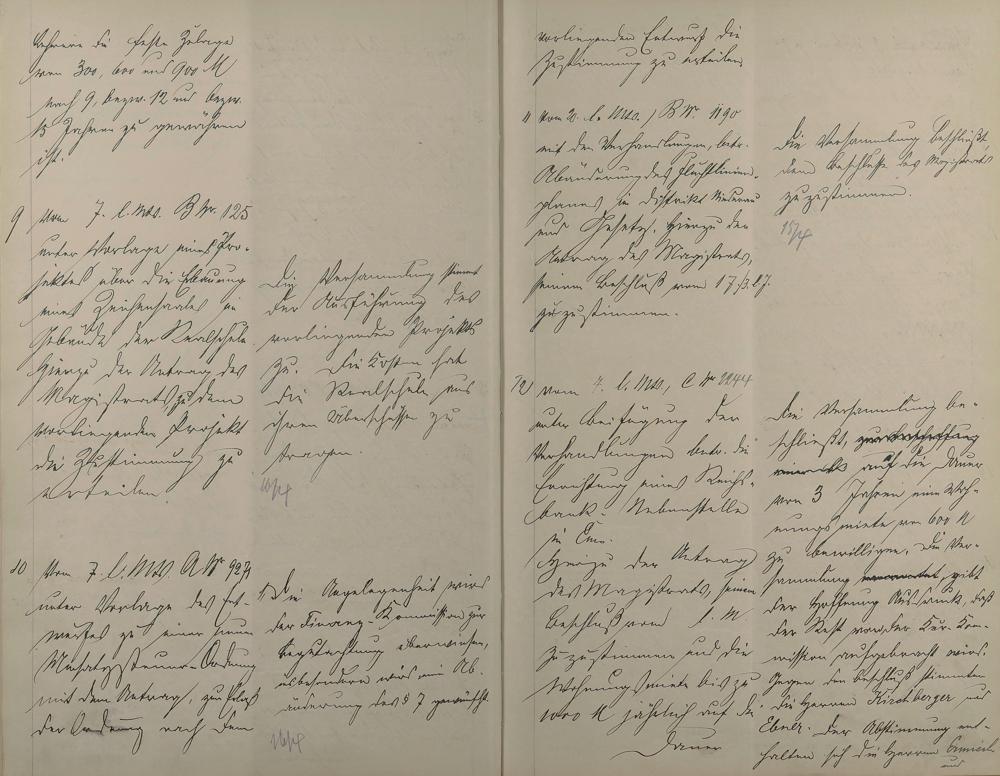 Lehrern die feste Zulage
von 300, 600 und 900 M
nach 9, bezw. 12 und bezw.
15 Jahren zu gewähren
ist.
9 Vom 7. l. Mts. B Nr. 125
unter Vorlage eines Pro-
jektes über die Erbauung
eines Zeichensaales im
Gebäude der Realschule
Hierzu der Antrag des
Magistrats, zu dem
vorliegenden Projekt
die Zustimmung zu
erteilen
Die Versammlung stimmt
der Ausführung des
vorliegenden Projekts
zu. Die Kosten hat
die Realschule aus
ihren Überschüssen zu
tragen.
10/4
10 Vom 7. l. Mts. A Nr 927
unter Vorlage des Ent-
wurfes zu einer neuen
Umsatzsteuer-Ordnung
mit dem Antrag, zum
der Ordnung nach dem
Die Angelegenheit wird
der Finanz-Kommission zur
Begutachtung überwiesen,
insbesondere wird eine Ab-
änderung des § 7 gewünscht.
16/4
vorliegenden Entwurf die
Zustimmung zu erteilen
11 Vom 20. l. Mts. B Nr. 1190
mit den Verhandlungen, betr.
Abänderung des Fluchtlinien-
planes im Distrikt
und Hierzu der
Antrag des Magistrats,
seinem Beschluß vom 17./3.07.
zuzustimmen.
Die Versammlung beschließt,
dem Beschlusse des Magistrats
zuzustimmen.
15/4
12 Vom 4. l. Mts, C Nr 2244
unter Beifügung der
Verhandlungen betr. die
Errichtung einer Reichs-
bank-Nebenstelle
in Ems.
Hierzu der Antrag
des Magistrats, seinem
Beschluß vom l. M
zuzustimmen und die
Wohnungsmiete bis zu
1000 M jährlich auf die
Dauer
Die Versammlung be-
schließt,
auf die Dauer
von 3 Jahren eine Woh-
nungsmiete von 600 M
zu bewilligen. Die Ver-
sammlung gibt
der Hoffnung Ausdruck, daß
der Rest von der Kur-Kom-
mission aufgebracht wird.
Gegen den Beschluß stimmten
die Herren Kirchberger und
Ebner. Der Abstimmung ent-
halten sich die Herren
und